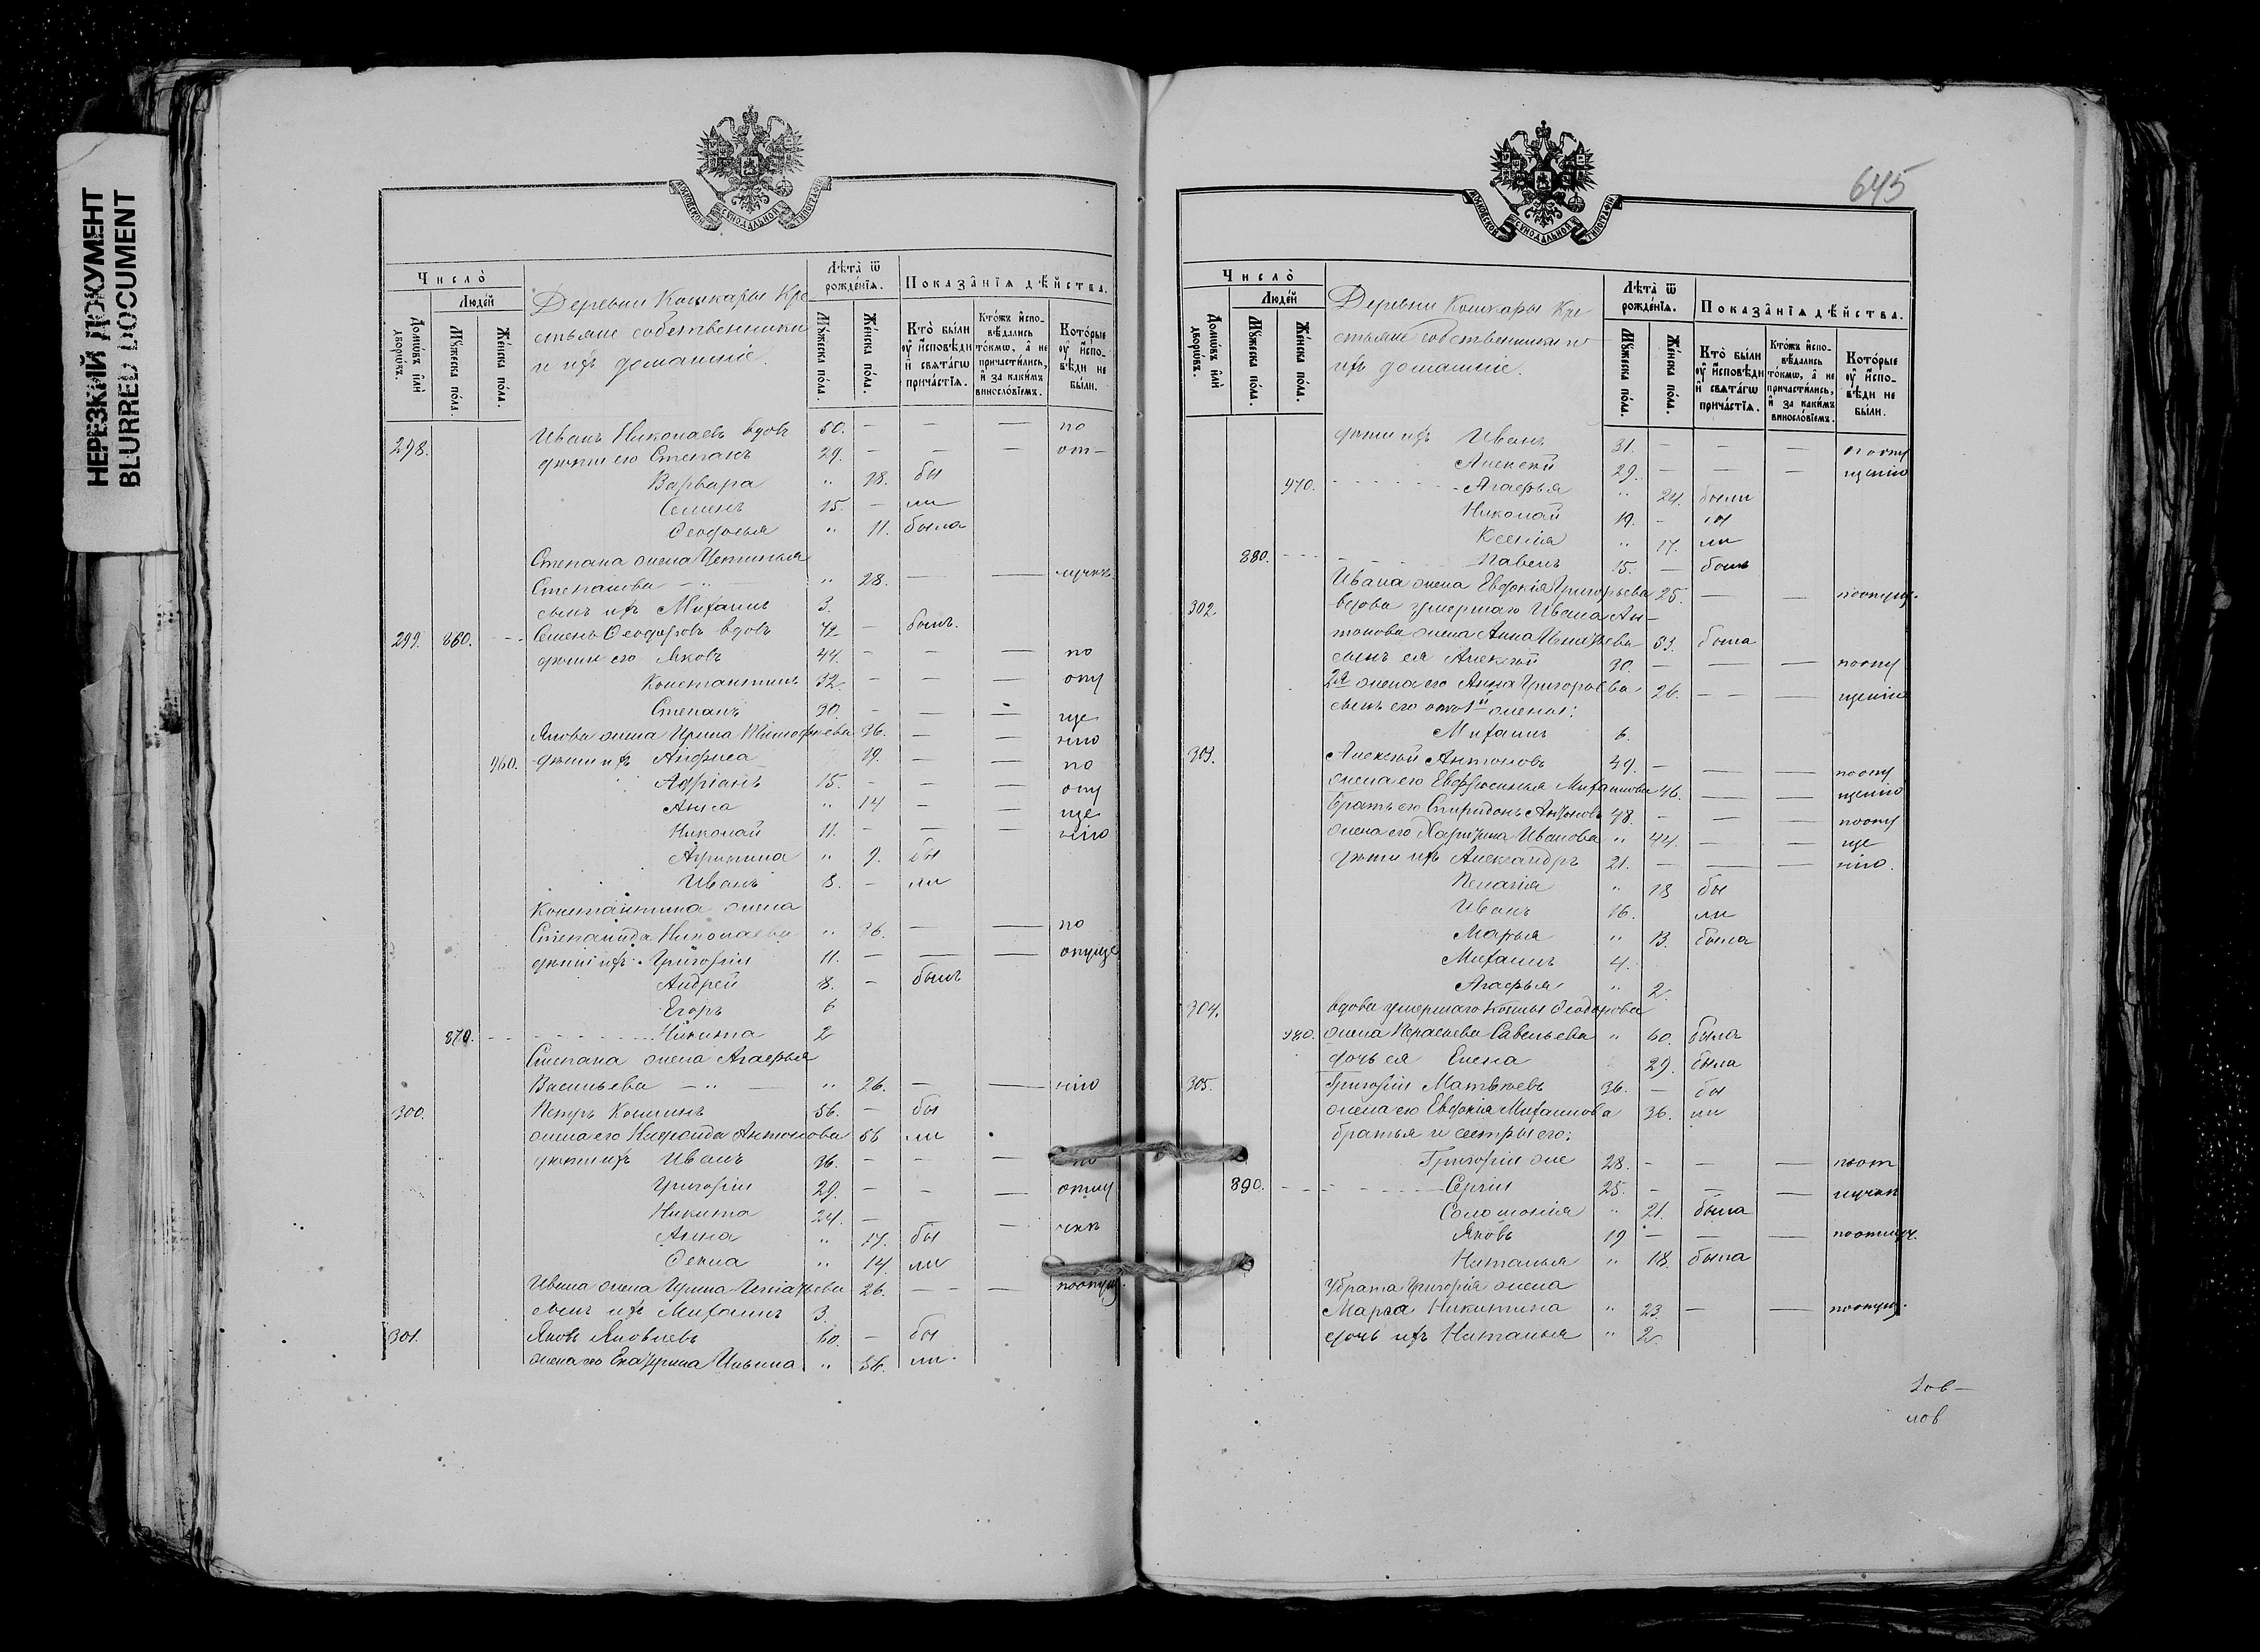 НЕРЕЗКИЙ ДОКУМЕНТ
BLURRED DOCUMENT
МОСКОВСКОЙ СУНОДАЛЬНОЙ ТИПОГРАФІИ
Число̀
Людей
Домѡвъ и҆лѝ дворѡвъ.
Мꙋжеска по́ла.
Же́нска по́ла.
Деревни Кошкары Кре
стьяне собственники
и ихъ домашніе.
Лѣта̀ ѿ рожде́нїѧ.
Мꙋжеска по́ла.
Же́нска по́ла.
Показа̂нїѧ дѣ́йства.
Кто̀ бы́ли ᲂу҆ и҆сповѣди и҆ свѧта́гѡ прича́стїѧ.
Кто́жъ и҆спо-вѣдались то́кмѡ, а҆ не причасти́лись, и҆ за каки́мъ винословїемъ.
Кото́рые ᲂу҆ и҆спо-вѣди не бы́ли.
298. Иванъ Николаевъ вдовъ 50. — — — по
дѣти его Степанъ 29. — — — от-
Варвара " 18. бы
Семенъ 15. — ли
Ѳеодосья " 11. была
Степана жена
Степанова — " — " 28. — —
сынъ ихъ Михаилъ 3.
299. 860. Семенъ Ѳеодоровъ вдовъ — былъ.
дѣти его Яковъ 44. — — — по
Константинъ 32. — — — опу
Степанъ 30. — — — ще
Якова жена Ирина Тимофѣева 36. — — нію
960. дѣти ихъ Анфиса 19. — — по
Адріанъ 15. — — — опу
Анна " 14 — — ще
Николай 11. — — — нію
Агрипина " 9. бы
Иванъ 8. — ли
Константина жена
Степанида Николаева " 36. — — по
дѣти ихъ: Григорій 11. — — — опуще
Андрей 8. — былъ
Егоръ 6
870. Никита 2
Степана жена Агафья
Васильева — " — " 26. — — нію
300. Петръ Козминъ 56. — бы
жена его Антонова 56 ли
дѣти ихъ Иванъ 36. — — — по
Григорій 29. — — — отлу
Никита 24. — — — чкѣ
Анна " 17. бы
Ѳекла " 14. ли
Ивана жена Ирина Игнатьева 26. — — поопущ.
сынъ ихъ Михаилъ 3.
301. Яковъ Яковлевъ 60. — бы
жена его Екатерина Ильина " 56. ли.
645
МОСКОВСКОЙ СУНОДАЛЬНОЙ ТИПОГРАФІИ
Число̀
Людей
Домѡвъ и҆лѝ дворѡвъ.
Мꙋжеска по́ла.
Же́нска по́ла.
Деревни Кошкары Кре
стьяне собственники и
ихъ домашніе.
Лѣта̀ ѿ рожде́нїѧ.
Мꙋжеска по́ла.
Же́нска по́ла.
Показа̂нїѧ дѣ́йства.
Кто̀ бы́ли ᲂу҆ и҆сповѣди и҆ свѧта́гѡ прича́стїѧ.
Кто́жъ и҆спо-вѣдались то́кмѡ, а҆ не причасти́лись, и҆ за каки́мъ винословїемъ.
Кото́рые ᲂу҆ и҆спо-вѣди не бы́ли.
дѣти ихъ Иванъ 31. — — — поопу
Алексѣй 29. — — — щенію
970. Агафья " 24. были
Николай 19. — бы
Ксенія " 17. ли
880. Павелъ 15. — былъ
Ивана жена Евдокія Григорьева 25. — — поопущ.
302. вдова умершаго Ивана Ан-
тонова жена Анна Игнатьева 53. была
сынъ ея Алексѣй 30. — — — поопу
2я жена его Анна Григорьева 26. — — щенію
сынъ его отъ 1й жены:
Михаилъ 6.
303. Алексѣй Антоновъ 49. — — — поопу
жена его Евфросинья Михаилова 46. — — щенію
братъ его Спиридонъ Антоновъ 48. — — — поопу
жена его Харитина Иванова " 44. — — ще
дѣти ихъ Александръ 21. — — — нію.
Пелагія " 18 бы
Иванъ 16. ли
Марья " 13. была
Михаилъ 4.
Агафья " 2.
304. вдова умершаго Козмы Ѳеодорова
980. жена Параскева Савельева " 60. была
дочь ея Елена 29. была
305. Григорій Матвѣевъ 36. — бы
жена его Евдокія Михаилова 36. ли
братья и сестры его:
Григорій же 28. — — — поот
890. Сергій 25. — — — лучкѣ
Соломонія " 21. была
Яковъ 19 — — — поотлуч.
Наталья " 18. была
У брата Григорія жена
Марѳа Никитина " 23. — — поопущ.
дочь ихъ Наталья " 2.